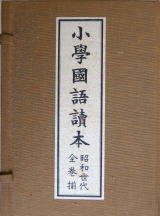 小學國語讀本
昭和世代
全巻揃